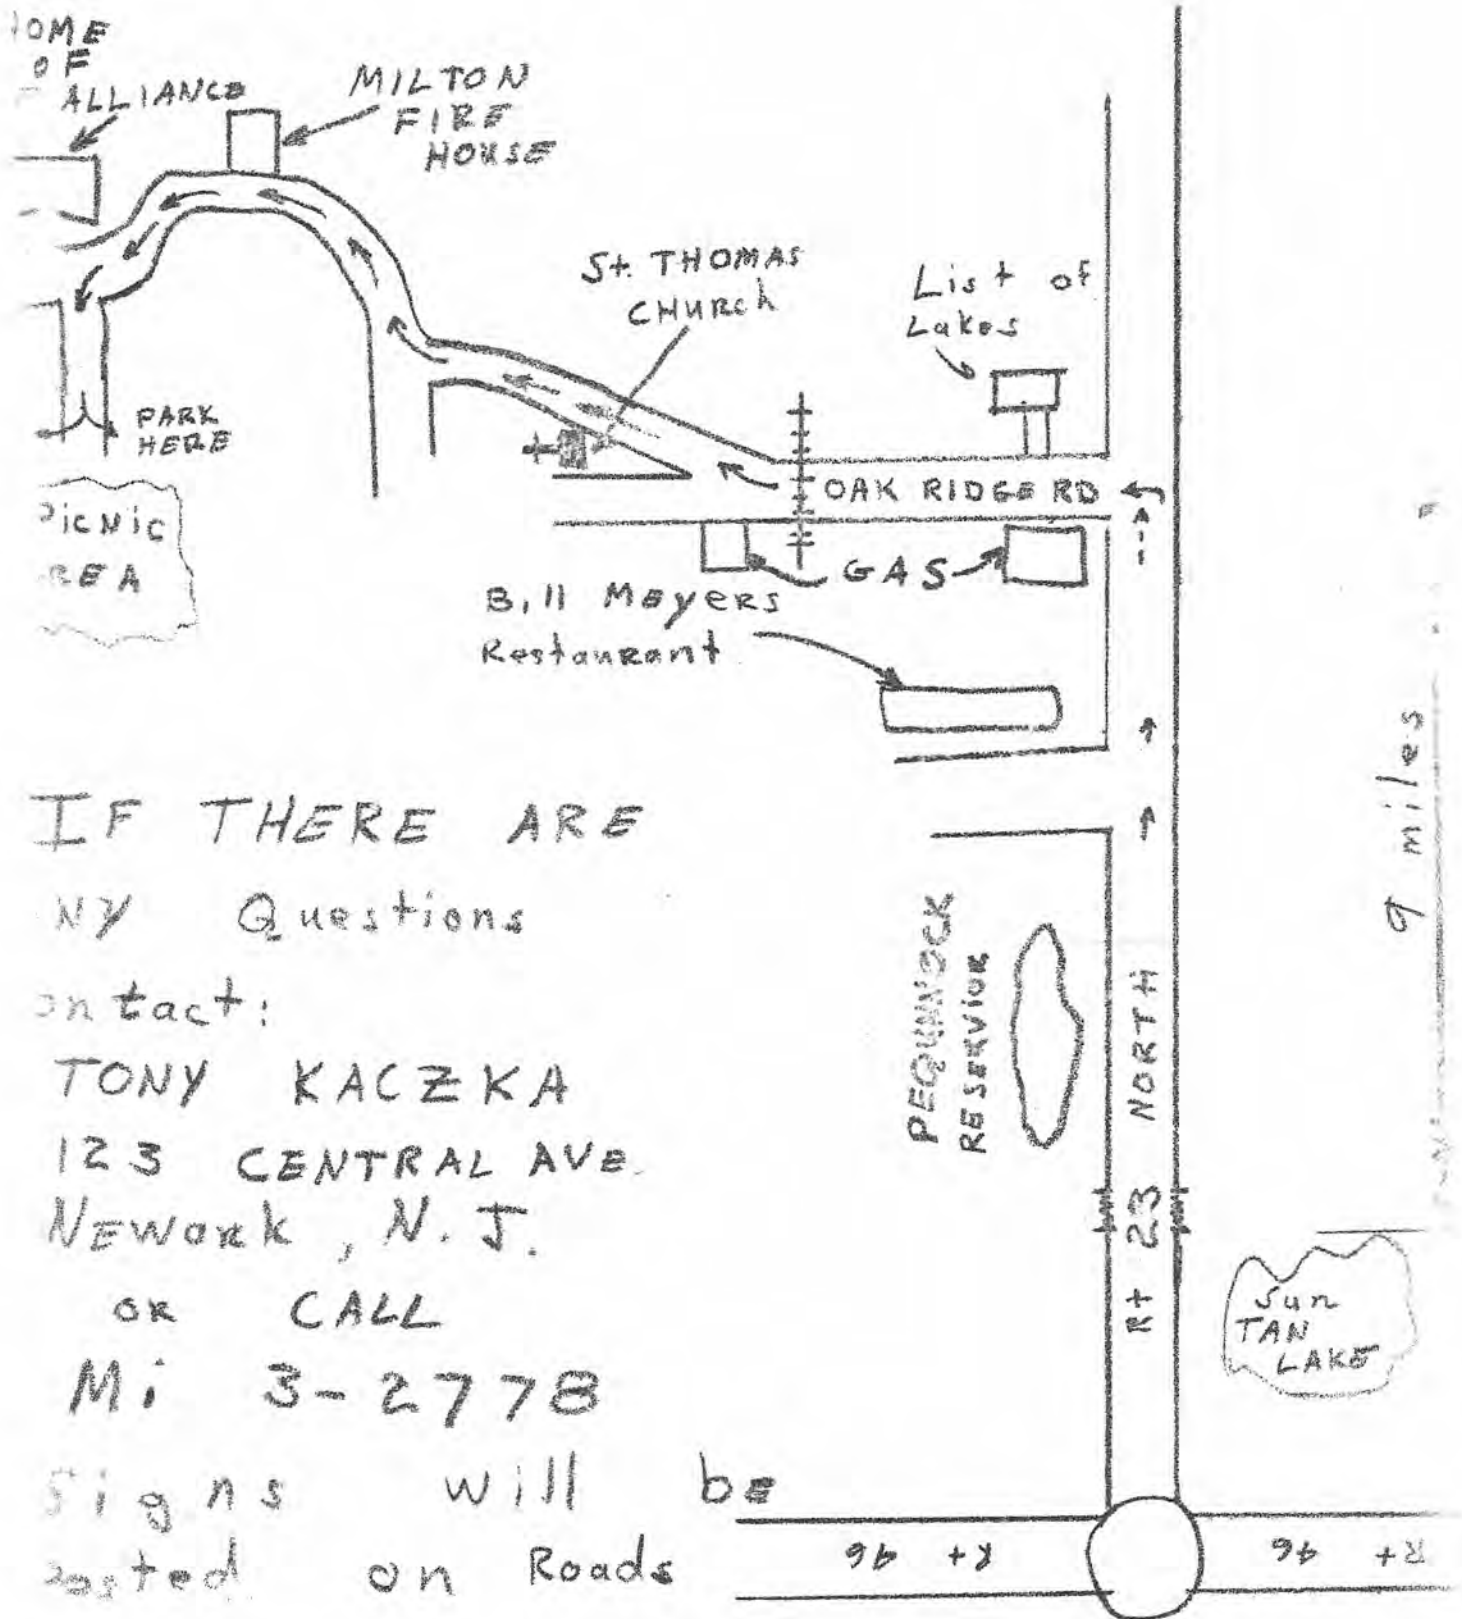 HOME
OF
ALLIANCE
MILTON
FIRE
HOUSE
St. THOMAS
CHURCh
List of
Lakes
PARK
HERE
OAK RIDGE RD
PicNic
REA
GAS
Bill MeyeRs
RestauRant
9 miles
IF THERE ARE
NY Questions
ontact:
TONY KACZKA
123 CENTRAL AVE.
NEWaRk, N. J.
OR CALL
Mi 3-2778
Signs will be
posted on Roads
PEQUNNOCK
RESERVioR
Rt 23 NORTH
Sun
TAN
LAKE
Rt 46
Rt 46